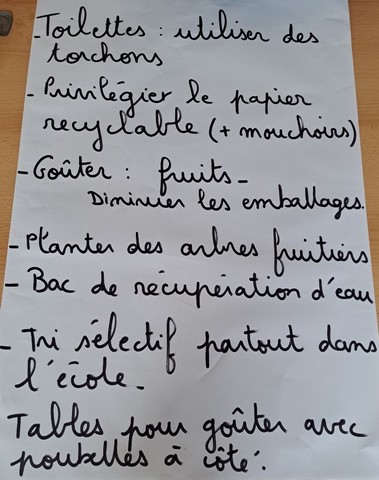 - Toilettes : utiliser des
torchons
- Privilégier le papier
recyclable (+ mouchoirs)
- Goûter : fruits -
Diminuer les emballages.
- Planter des arbres fruitiers
- Bac de récupération d'eau
- Tri sélectif partout dans
l'école -
Tables pour goûter avec
poubelles à côté.